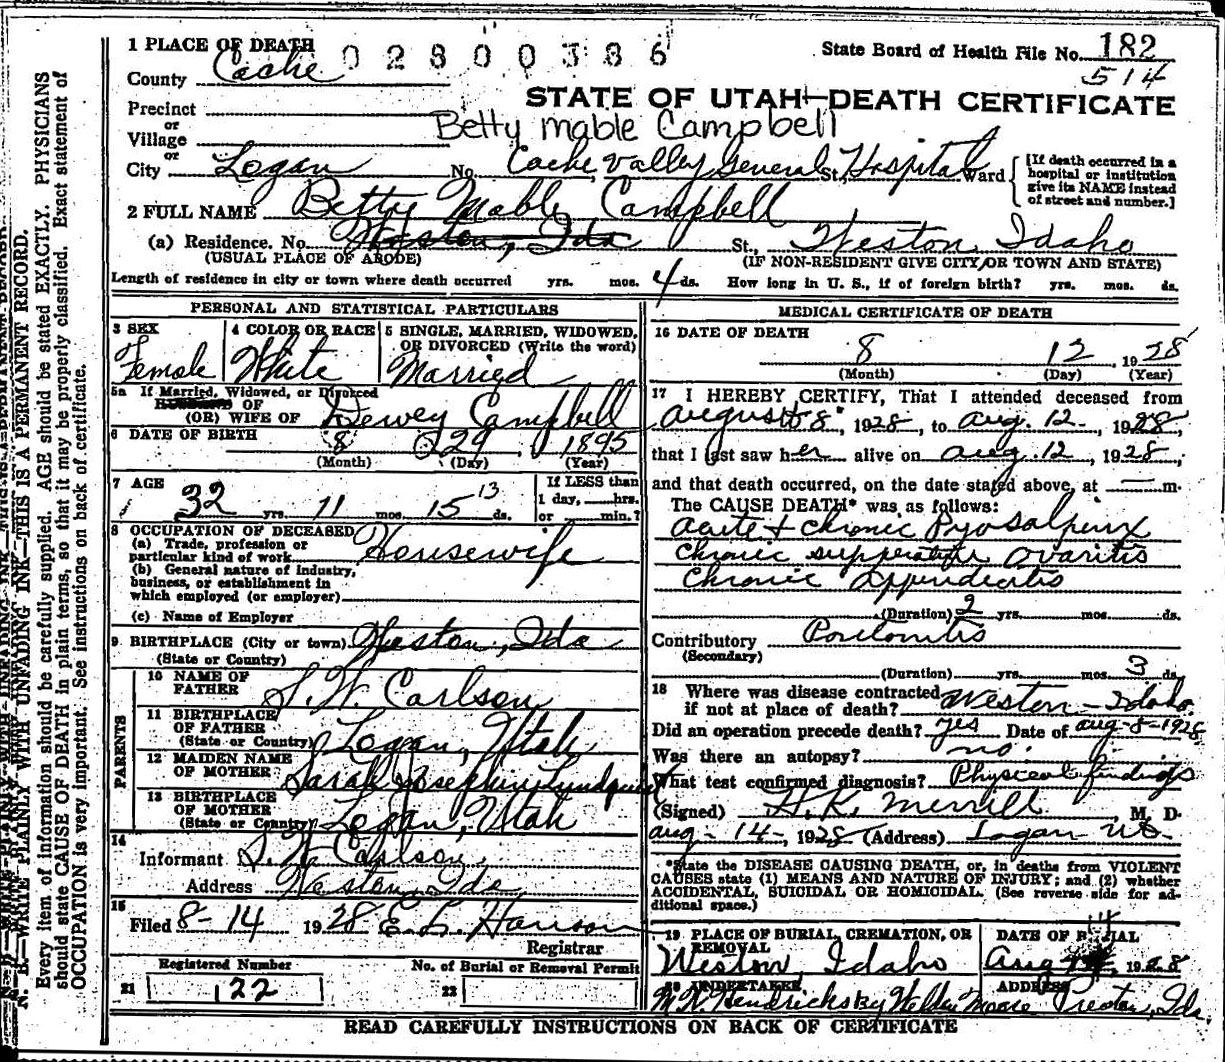 1 PLACE OF DEATH 02800386 State Board of Health File No. 182
County Cache 514
STATE OF UTAH—DEATH CERTIFICATE
Precinct
or
Village
Betty Mable Campbell
or
City Logan No. Cache Valley General St., Hospital Ward
[If death occurred in a hospital or institution give its NAME instead of street and number.]
2 FULL NAME Betty Mable Campbell
(a) Residence. No. Weston, Ida St., Weston, Idaho
(USUAL PLACE OF ABODE) (IF NON-RESIDENT GIVE CITY OR TOWN AND STATE)
Length of residence in city or town where death occurred yrs. mos. 4 ds. How long in U. S., if of foreign birth? yrs. mos. ds.
PERSONAL AND STATISTICAL PARTICULARS
3 SEX Female
4 COLOR OR RACE White
5 SINGLE, MARRIED, WIDOWED, OR DIVORCED (Write the word) Married
5a If Married, Widowed, or Divorced
HUSBAND OF
(OR) WIFE OF Dewey Campbell
6 DATE OF BIRTH 8 29 1895
(Month) (Day) (Year)
7 AGE 32 yrs. 11 mos. 15 13 ds.
If LESS than 1 day, hrs. or min.?
8 OCCUPATION OF DECEASED
(a) Trade, profession or particular kind of work Housewife
(b) General nature of industry, business, or establishment in which employed (or employer)
(c) Name of Employer
9 BIRTHPLACE (City or town) Weston, Ida
(State or Country)
PARENTS
10 NAME OF FATHER S. W. Carlson
11 BIRTHPLACE OF FATHER (State or Country) Logan, Utah
12 MAIDEN NAME OF MOTHER Sarah Josephine Lundquist
13 BIRTHPLACE OF MOTHER (State or Country) Logan, Utah
14
Informant S. W. Carlson
Address Weston, Ida
15
Filed 8-14 1928 E. L. Hanson
Registrar
Registered Number No. of Burial or Removal Permit
21 122 22
MEDICAL CERTIFICATE OF DEATH
16 DATE OF DEATH
8 12 1928
(Month) (Day) (Year)
17 I HEREBY CERTIFY, That I attended deceased from
August 8, 1928, to Aug. 12, 1928,
that I last saw her alive on Aug. 12, 1928,
and that death occurred, on the date stated above, at — m.
The CAUSE DEATH* was as follows:
Acute + Chronic Pyosalpinx
Chronic suppurative ovaritis
Chronic Appendicitis
(Duration) 2 yrs. mos. ds.
Contributory Peritonitis
(Secondary)
(Duration) yrs. mos. 3 ds.
18 Where was disease contracted if not at place of death? Weston - Idaho.
Did an operation precede death? yes Date of Aug-8-1928
Was there an autopsy? no.
What test confirmed diagnosis? Physical findings
(Signed) H. K. Merrill M. D.
Aug-14-, 1928 (Address) Logan Ut.
*State the DISEASE CAUSING DEATH, or, in deaths from VIOLENT
CAUSES state (1) MEANS AND NATURE OF INJURY; and (2) whether
ACCIDENTAL, SUICIDAL OR HOMICIDAL. (See reverse side for additional space.)
19 PLACE OF BURIAL, CREMATION, OR REMOVAL Weston, Idaho
DATE OF BURIAL Aug 14, 1928
20 UNDERTAKER ADDRESS
W. H. Hendricks by Weldon Moore Preston, Ida.
READ CAREFULLY INSTRUCTIONS ON BACK OF CERTIFICATE
N. B.—WRITE PLAINLY WITH UNFADING INK—THIS IS A PERMANENT RECORD.
Every item of information should be carefully supplied. AGE should be stated EXACTLY. PHYSICIANS
should state CAUSE OF DEATH in plain terms, so that it may be properly classified. Exact statement of
OCCUPATION is very important. See instructions on back of certificate.